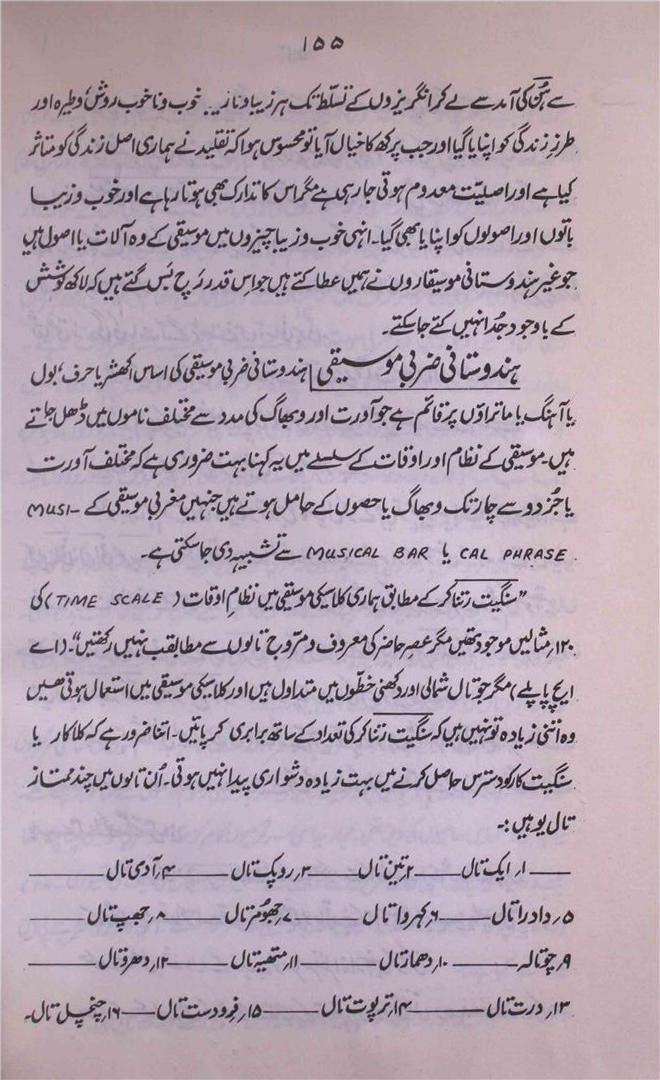 ۱۵۵
سے ہُن کی آمد سے لے کر انگریزوں کے تسلّط تک ہر زیبا و نازیبا۔ خوب و ناخوب روش، وطیرہ اور
طرزِ زندگی کو اپنایا گیا اور جب پرکھ کا خیال آیا تو محسوس ہوا کہ تقلید نے ہماری اصل زندگی کو متاثر
کیا ہے اور اصلیّت معدوم ہوتی جا رہی ہے مگر اس کا تدارک بھی ہوتا رہا ہے اور خوب و زیبا
باتوں اور اصولوں کو اپنایا بھی گیا۔ انہی خوب و زیبا چیزوں میں موسیقی کے وہ آلات یا اصول ہیں
جو غیر ہندوستانی موسیقاروں نے ہمیں عطا کئے ہیں جو اس قدر رَچ بَس گئے ہیں کہ لاکھ کوشش
کے باوجود جُدا نہیں کئے جا سکتے۔
ہندوستانی ضربی موسیقی ہندوستانی ضربی موسیقی کی اساس اکھشر یا حرف، بول
یا آہنگ یا ماتراؤں پر قائم ہے جو آورت اور وبھاگ کی مدد سے مختلف ناموں میں ڈھل جاتے
ہیں۔ موسیقی کے نظام اور اوقات کے سلسلے میں یہ کہنا بہت ضروری ہے کہ مختلف آورت
یا جُز دو سے چار تک وبھاگ یا حصوں کے حامل ہوتے ہیں جنہیں مغربی موسیقی کے MUSI-
CAL PHRASE یا MUSICAL BAR سے تشبیہہ دی جا سکتی ہے۔
”سنگیت رتناکر کے مطابق ہماری کلاسیکی موسیقی میں نظامِ اوقات (TIME SCALE) کی
۱۲۰؍ مثالیں موجود تھیں مگر عصرِ حاضر کی معروف و مروّج تالوں سے مطابقت نہیں رکھتیں“۔ (اے
ایچ پاپلے) مگر جو تال شمالی اور دکھنی خطّوں میں متداول ہیں اور کلاسیکی موسیقی میں استعمال ہوتی ھیں
وہ اتنی زیادہ تو نہیں ہیں کہ سنگیت رتناکر کی تعداد کے ساتھ برابری کر پائیں۔ اتنا ضرور ہے کہ کلاکار یا
سنگیت کار کو دسترس حاصل کرنے میں بہت زیادہ دشواری پیدا نہیں ہوتی۔ اُن تالوں میں چند ممتاز
تال یوں ہیں :۔
۱؍ ایک تال ۲؍ تین تال ۳؍ روپک تال ۴؍ آدی تال
۵؍ دادرا تال ۶؍ کہروا تال ۷؍ جھومر تال ۸؍ جھپ تال
۹؍ چوتالہ ۱۰؍ دھمار تال ۱۱؍ متھیہ تال ۱۲؍ دھرو تال
۱۳؍ درت تال ۱۴؍ ترپوٹ تال ۱۵؍ فرودست تال ۱۶؍ چنچل تال۔